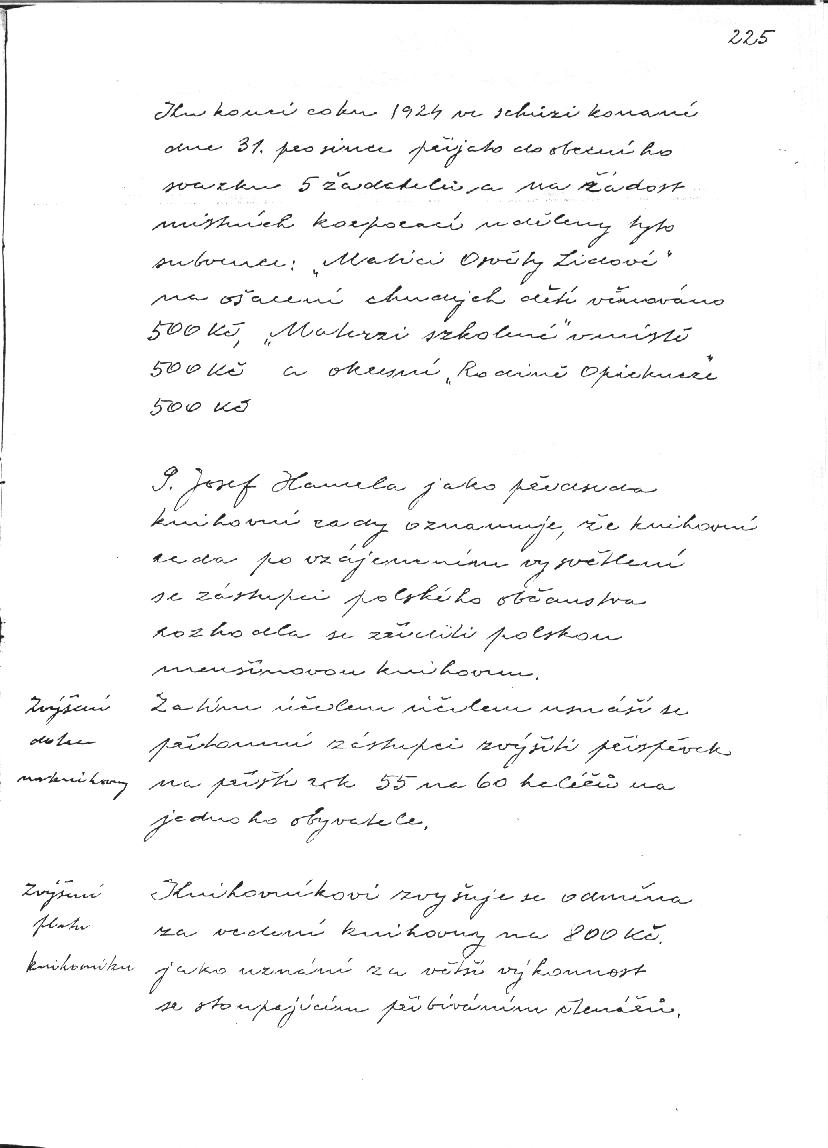 225
Ku konci roku 1924 ve schůzi konané
dne 31. prosince přijato do obecního
svazku 5 žadatelů, a na žádost
místních korporací uděleny tyto
subvence: „Matici Osvěty Lidové"
na ošacení chudých dětí věnováno
500 Kč, „Macierzi szkolené" v místě
500 Kč a okresní „Rodině Opiekuńczé"
500 Kč
P. Josef Hamela jako předseda
knihovní rady oznamuje, že knihovní
rada po vzájemném vysvětlení
se zástupci polského občanstva
rozhodla se zříditi polskou
menšinovou knihovnu.
Zvýšení
dotace
na knihovny
Za tím účelem účelem usnáší se
přítomní zástupci zvýšiti příspěvek
na příští rok 55 na 60 haléřů na
jednoho obyvatele.
Zvýšení
platu
knihovníku
Knihovníkovi zvyšuje se odměna
za vedení knihovny na 800 Kč.
jako uznání za větší výkonnost
se stoupajícím přibíváním čtenářů.